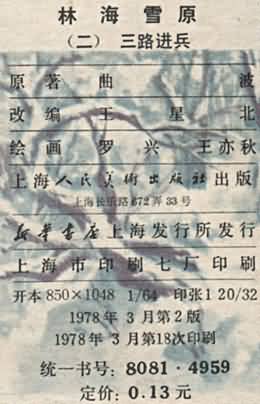 林海雪原
（二） 三路进兵
原著 曲波
改编 王星北
绘画 罗兴 王亦秋
上海人民美術出版社出版
上海长乐路672弄33号
新华書店上海发行所发行
上海市印刷七厂印刷
开本850×1048 1/64 印张1 20/32
1978年3月第2版
1978年3月第18次印刷
统一书号：8081·4959
定价：0.13元